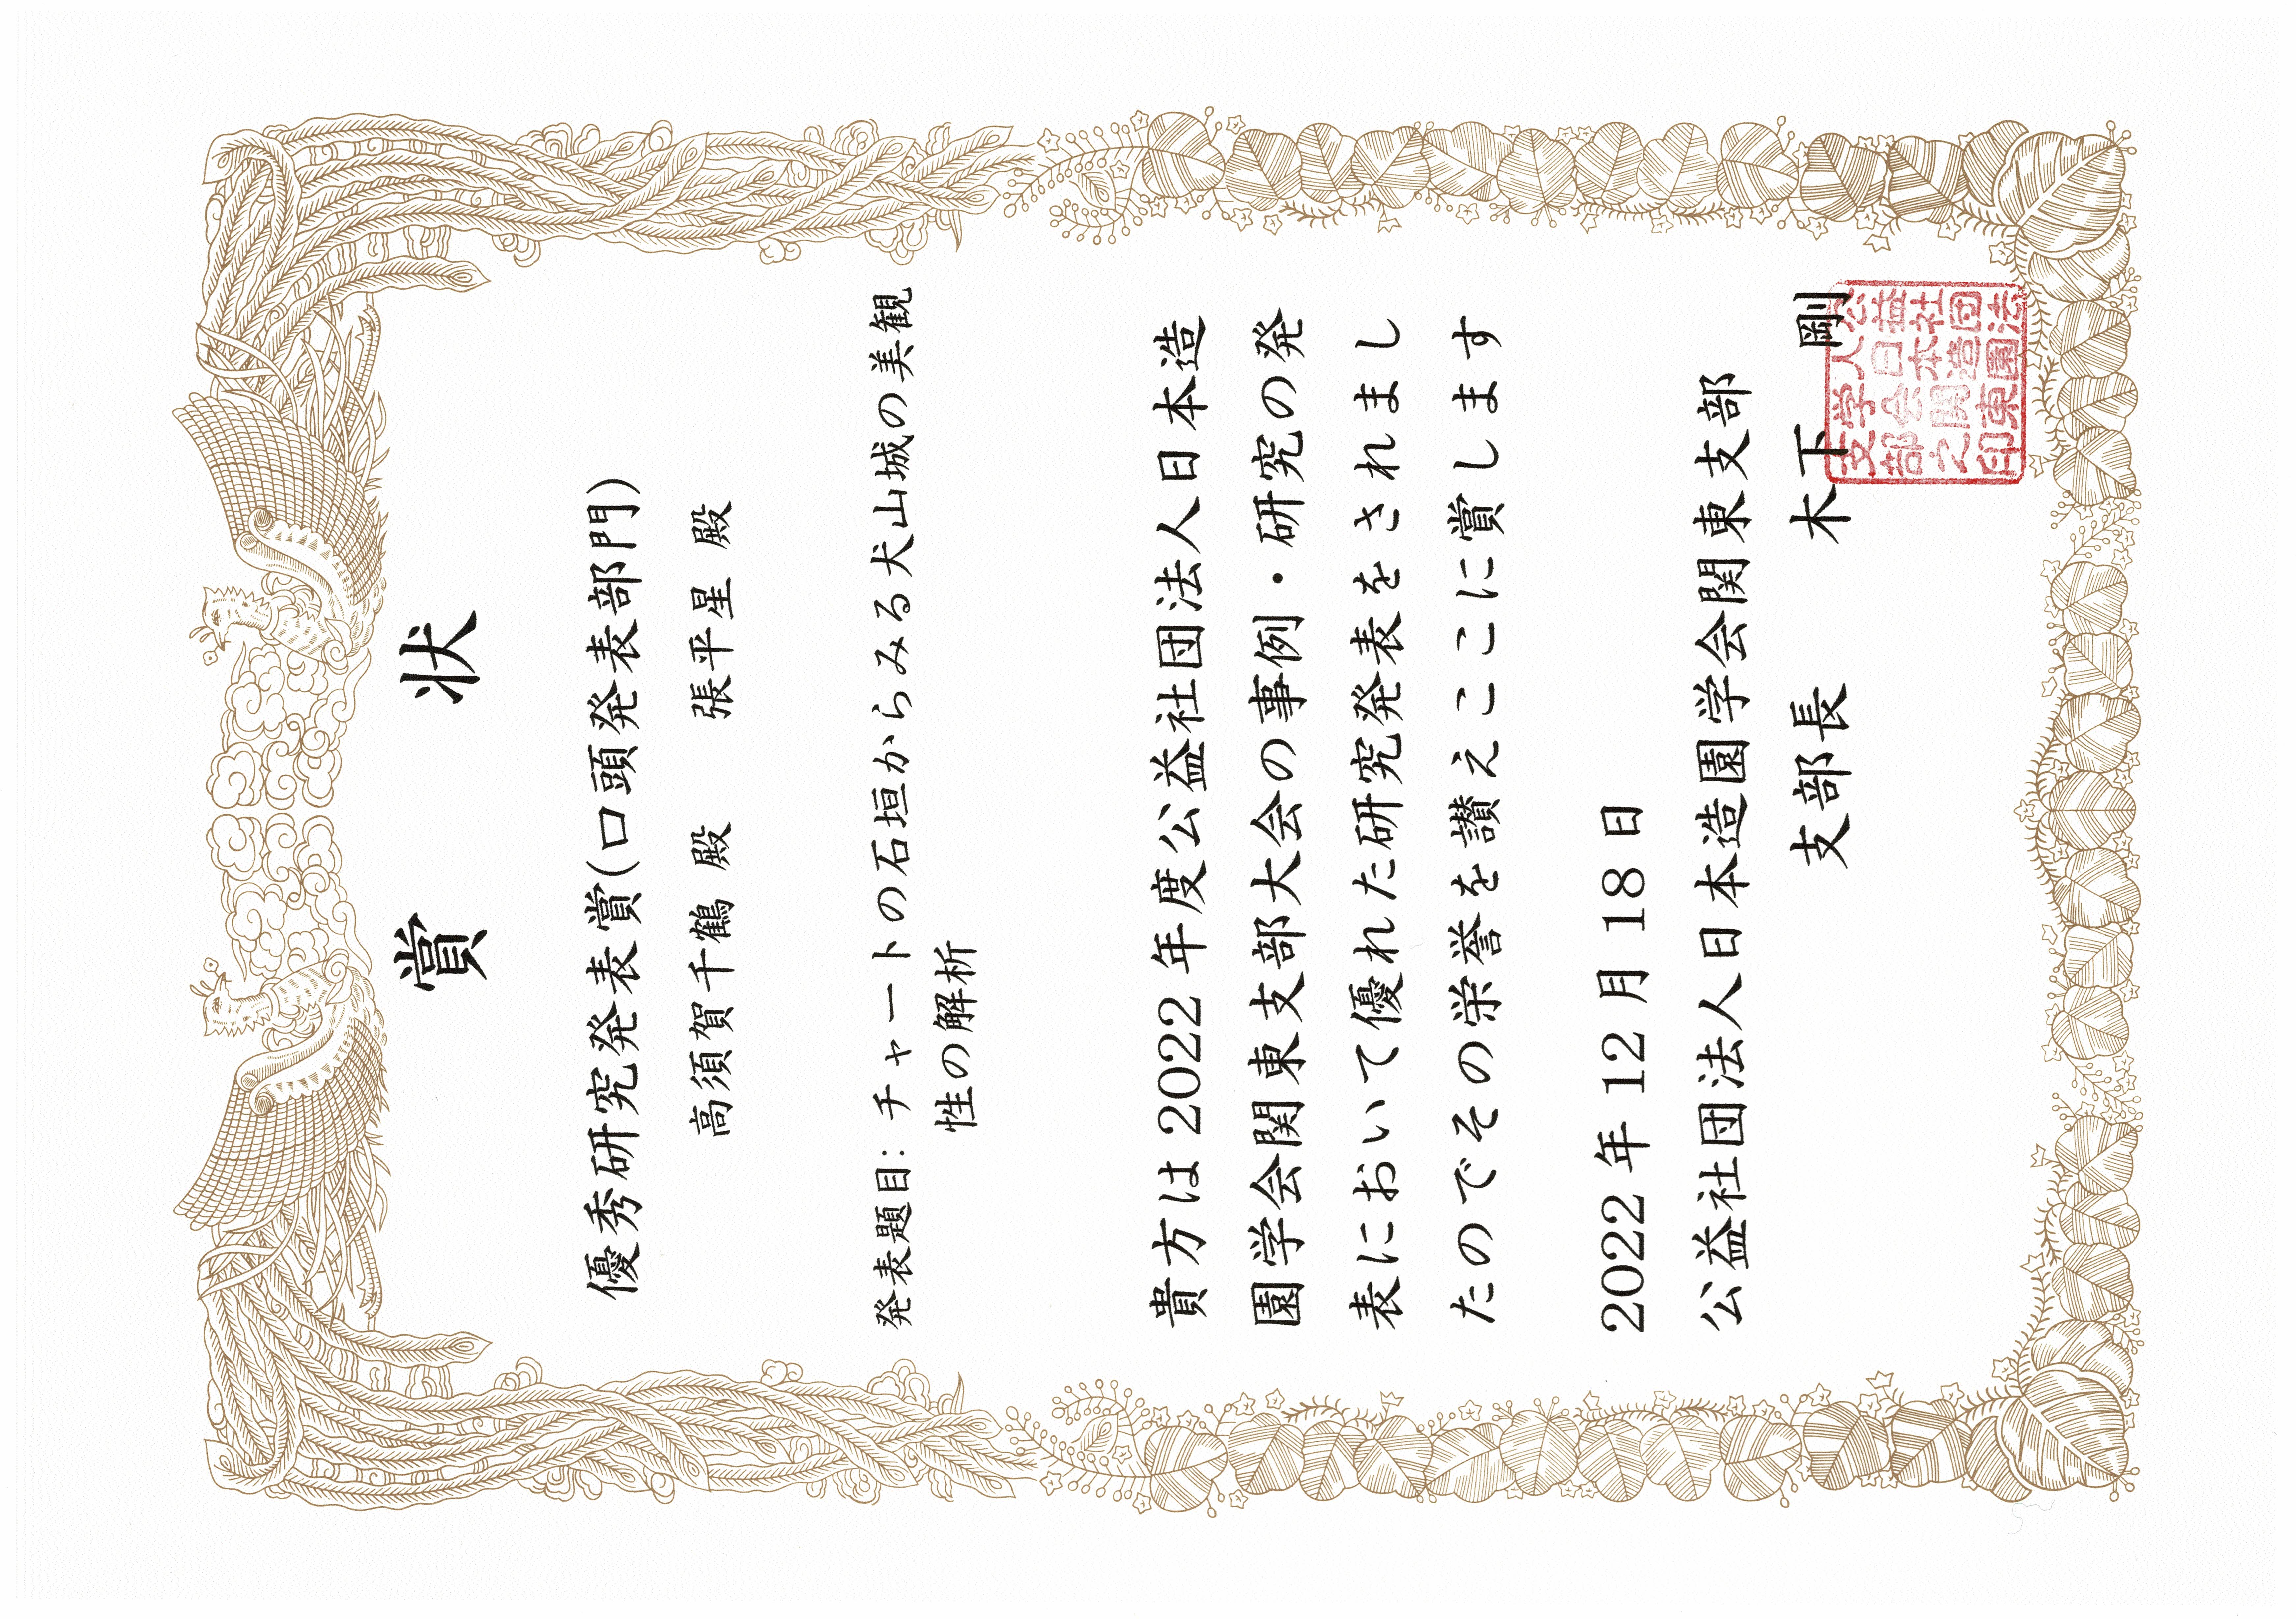 賞 状
優秀研究発表賞(口頭発表部門)
高須賀千鶴 殿 張平星 殿
発表題目: チャートの石垣からみる犬山城の美観
性の解析
貴方は 2022 年度公益社団法人日本造
園学会関東支部大会の事例・研究の発
表において優れた研究発表をされまし
たのでその栄誉を讃えここに賞します
2022 年 12 月 18 日
公益社団法人日本造園学会関東支部
支部長 木下 剛
公益社団法
人日本造園
学会関東
支部之印